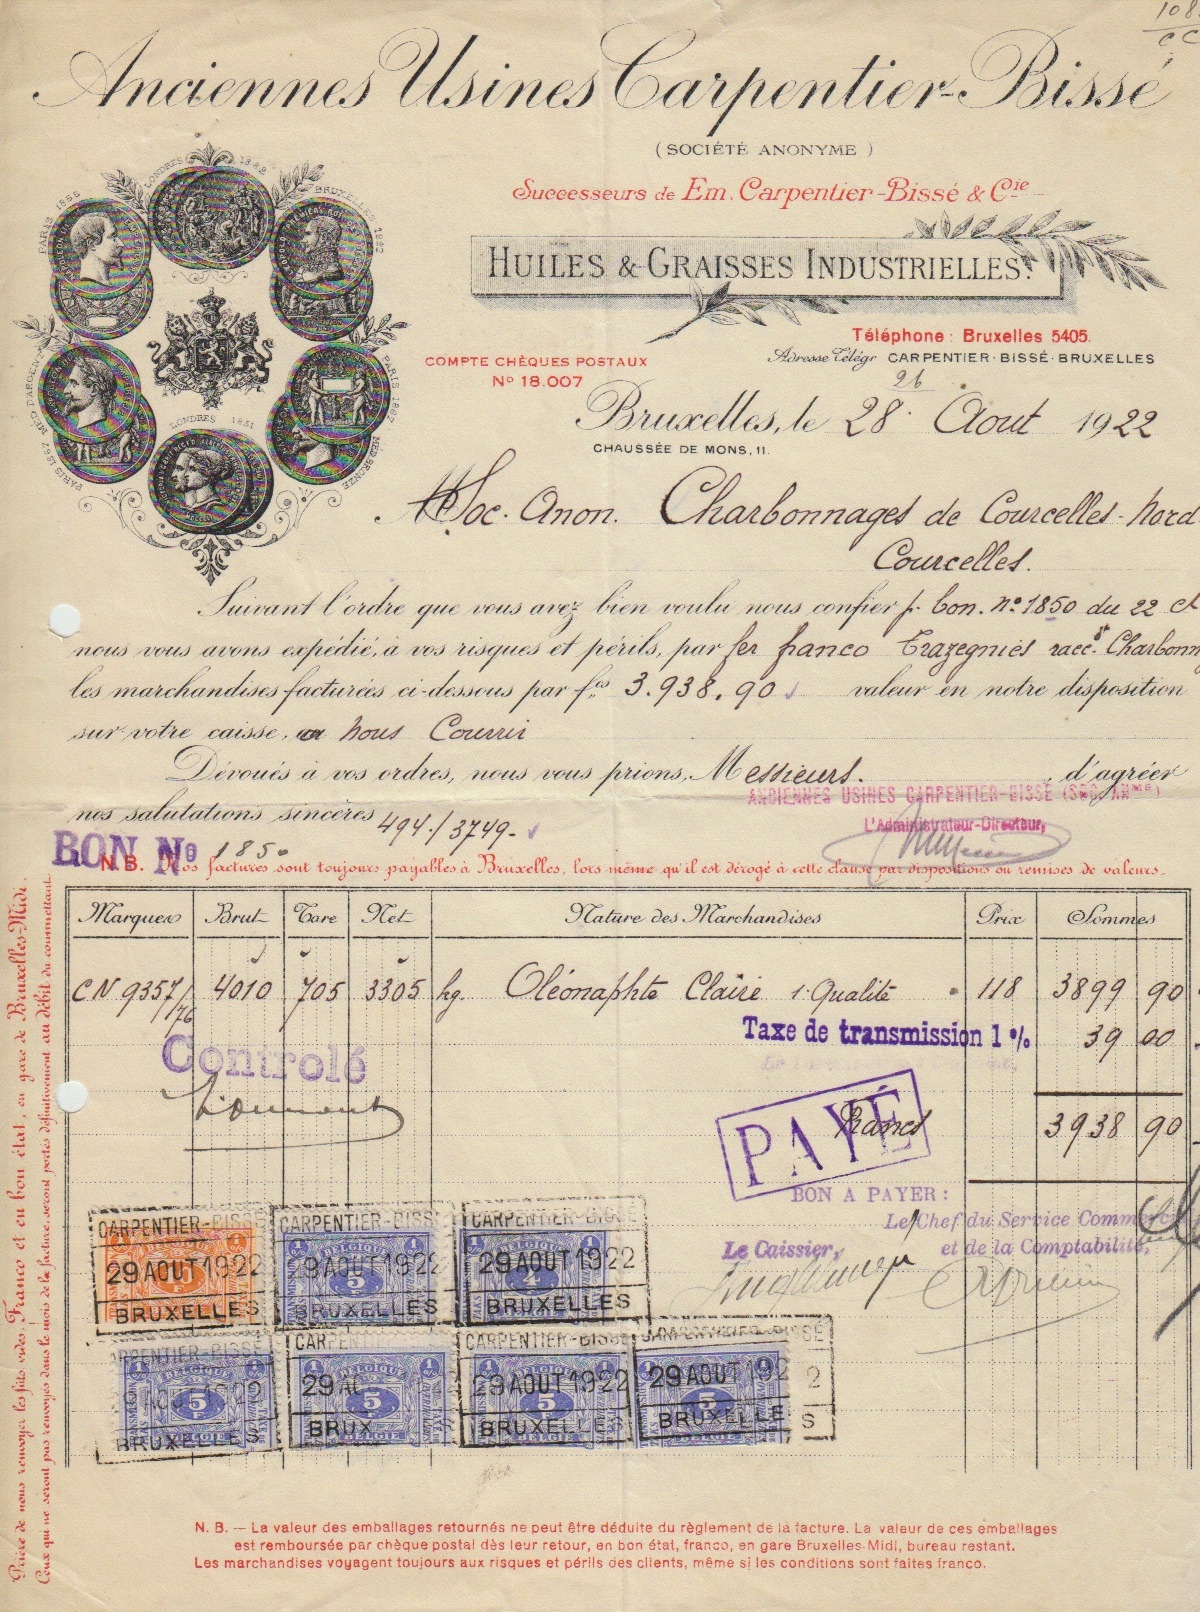 108
CC
Anciennes Usines Carpentier-Bissé
(SOCIÉTÉ ANONYME)
Successeurs de Em. Carpentier-Bissé & Cie
HUILES & GRAISSES INDUSTRIELLES.
PARIS 1855
LONDRES 1862
BRUXELLES
PARIS 1867 MED D'ARGENT
LONDRES 1851
PARIS 1867
MED BRONZE
Téléphone: Bruxelles 5405.
COMPTE CHÈQUES POSTAUX
Nº 18.007
Adresse Télégr CARPENTIER-BISSÉ-BRUXELLES
26
Bruxelles, le 28 Aout 1922
CHAUSSÉE DE MONS, 11.
Soc. Anon. Charbonnages de Courcelles-Nord
Courcelles.
Suivant l'ordre que vous avez bien voulu nous confier p. bon. nº 1850 du 22 ct
nous vous avons expédié, à vos risques et périls, par fer franco Trazegnies racc.t Charbonn
les marchandises facturées ci-dessous par fcs 3.938.90 valeur en notre disposition
sur votre caisse, nous Courrir
Dévoués à vos ordres, nous vous prions, Messieurs. , d'agréer
nos salutations sincères
ANCIENNES USINES CARPENTIER-BISSÉ (SOC. ANme)
L'Administrateur-Directeur,
494./3749-
BON Nº 1850
N. B. Nos factures sont toujours payables à Bruxelles, lors même qu'il est dérogé à cette clause par dispositions ou remises de valeurs.
Marques Brut Tare Net Nature des Marchandises Prix Sommes
CN 9357/76 4010 705 3305 kg. Oléonaphte Claire 1. Qualité 118 3899 90
Taxe de transmission 1 % 39 00
Controlé
Francs 3938 90
PAYÉ
BON A PAYER:
Le Chef du Service Commercial
et de la Comptabilité,
Le Caissier,
CARPENTIER-BISSÉ
29 AOUT 1922
BRUXELLES
CARPENTIER-BISS
BELGIQUE
29 AOUT 1922
5
BRUXELLES
CARPENTIER-BISSÉ
BELGIQUE
29 AOUT 1922
4
BRUXELLES
RPENTIER-BISSÉ
BELGIQUE
AOUT 1922
5
BRUXELLES
CARPEN
BELGIQUE
29 AO
5
BRUX
BELGIE
CARPENTIER-BISSÉ
BELGIQUE
29 AOUT 1922
5
BRUXELLES
BELGIE
CARPENTIER-BISSÉ
29 AOUT 192 2
5
BRUXELLE S
BELGIE
Prière de nous renvoyer les fûts vides Franco et en bon état, en gare de Bruxelles-Midi.
Ceux qui ne seront pas renvoyés dans le mois de la facture, seront portés définitivement au débit du commettant.
N. B. — La valeur des emballages retournés ne peut être déduite du règlement de la facture. La valeur de ces emballages
est remboursée par chèque postal dès leur retour, en bon état, franco, en gare Bruxelles-Midi, bureau restant.
Les marchandises voyagent toujours aux risques et périls des clients, même si les conditions sont faites franco.